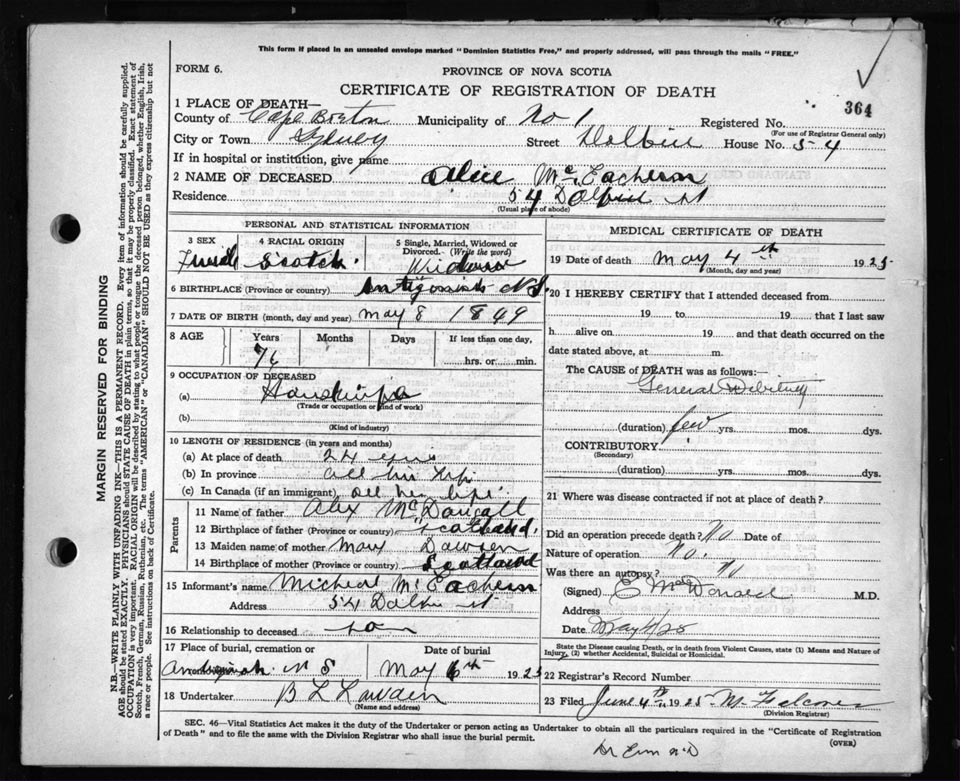 This form if placed in an unsealed envelope marked "Dominion Statistics Free," and properly addressed, will pass through the mails "FREE."
FORM 6.
PROVINCE OF NOVA SCOTIA
CERTIFICATE OF REGISTRATION OF DEATH
364
1 PLACE OF DEATH—
County of Cape Breton Municipality of No 1 Registered No.
(For use of Registrar General only)
City or Town Sydney Street House No. 54
If in hospital or institution, give name
2 NAME OF DECEASED Alice McEachern
Residence 54 St
(Usual place of abode)
PERSONAL AND STATISTICAL INFORMATION
3 SEX 4 RACIAL ORIGIN 5 Single, Married, Widowed or Divorced. (Write the word)
Scotch. Widow
6 BIRTHPLACE (Province or country) Antigonish N.S.
7 DATE OF BIRTH (month, day and year) May 8 1849
8 AGE Years Months Days If less than one day,
76 hrs. or min.
9 OCCUPATION OF DECEASED
(a)
(Trade or occupation or kind of work)
(b)
(Kind of industry)
10 LENGTH OF RESIDENCE (in years and months)
(a) At place of death 24 yrs
(b) In province all his life
(c) In Canada (if an immigrant) all her life.
Parents
11 Name of father Alex McDougall
12 Birthplace of father (Province or country) Scotland.
13 Maiden name of mother Mary
14 Birthplace of mother (Province or country) Scotland
15 Informant's name Michael McEachern
Address 54 St
16 Relationship to deceased
17 Place of burial, cremation or Date of burial
Antigonish N S May 6th 1925
18 Undertaker B L
(Name and address)
MEDICAL CERTIFICATE OF DEATH
19 Date of death May 4th 1925
(Month, day and year)
20 I HEREBY CERTIFY that I attended deceased from
19 to 19 that I last saw
h alive on 19 and that death occurred on the
date stated above, at m.
The CAUSE of DEATH was as follows:—
General Debility
(duration) few yrs. mos. dys.
CONTRIBUTORY
(Secondary)
(duration) yrs. mos. dys.
21 Where was disease contracted if not at place of death?
Did an operation precede death? No Date of
Nature of operation No.
Was there an autopsy? No
(Signed) E McDonald M.D.
Address
Date May 4/25
State the Disease causing Death, or in death from Violent Causes, state (1) Means and Nature of Injury, (2) whether Accidental, Suicidal or Homicidal.
22 Registrar's Record Number
23 Filed June 4th 1925
(Division Registrar)
SEC. 46—Vital Statistics Act makes it the duty of the Undertaker or person acting as Undertaker to obtain all the particulars required in the "Certificate of Registration
of Death" and to file the same with the Division Registrar who shall issue the burial permit.
(OVER)
MARGIN RESERVED FOR BINDING
N.B.—WRITE PLAINLY WITH UNFADING INK—THIS IS A PERMANENT RECORD. Every item of information should be carefully supplied.
AGE should be stated EXACTLY. PHYSICIANS should STATE CAUSE OF DEATH in plain terms, so that it may be properly classified. Exact statement of
OCCUPATION is very important. RACIAL ORIGIN will be described by stating to what people or tongue the deceased person belonged, whether English, Irish,
Scotch, French, German, Russian, Ruthenian, etc. The terms "AMERICAN" or "CANADIAN" SHOULD NOT BE USED as they express citizenship but not
a race or people. See instructions on back of Certificate.